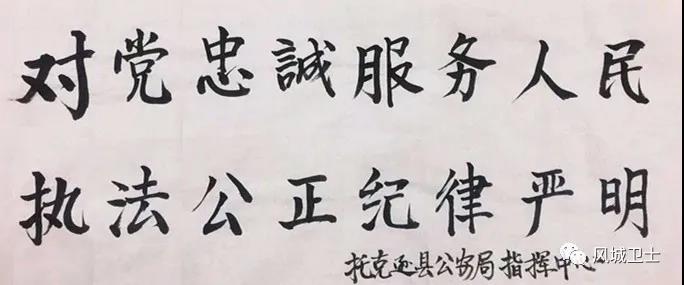 对党忠誠服务人民
执法公正纪律严明
托克逊县公安局指挥中心
风城卫士